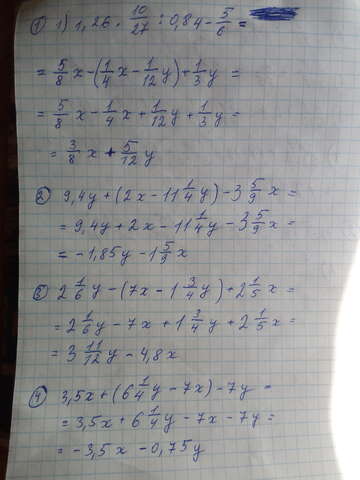 ① 1) 1,26 · 10/27 : 0,84 - 5/6 =
= 5/8 x - (1/4 x - 1/12 y) + 1/3 y =
= 5/8 x - 1/4 x + 1/12 y + 1/3 y =
= 3/8 x + 5/12 y
② 9,4y + (2x - 11 1/4 y) - 3 5/9 x =
= 9,4y + 2x - 11 1/4 y - 3 5/9 x =
= -1,85y - 1 5/9 x
③ 2 1/6 y - (7x - 1 3/4 y) + 2 1/5 x =
= 2 1/6 y - 7x + 1 3/4 y + 2 1/5 x =
= 3 11/12 y - 4,8x
④ 3,5x + (6 1/4 y - 7x) - 7y =
= 3,5x + 6 1/4 y - 7x - 7y =
= -3,5x - 0,75y